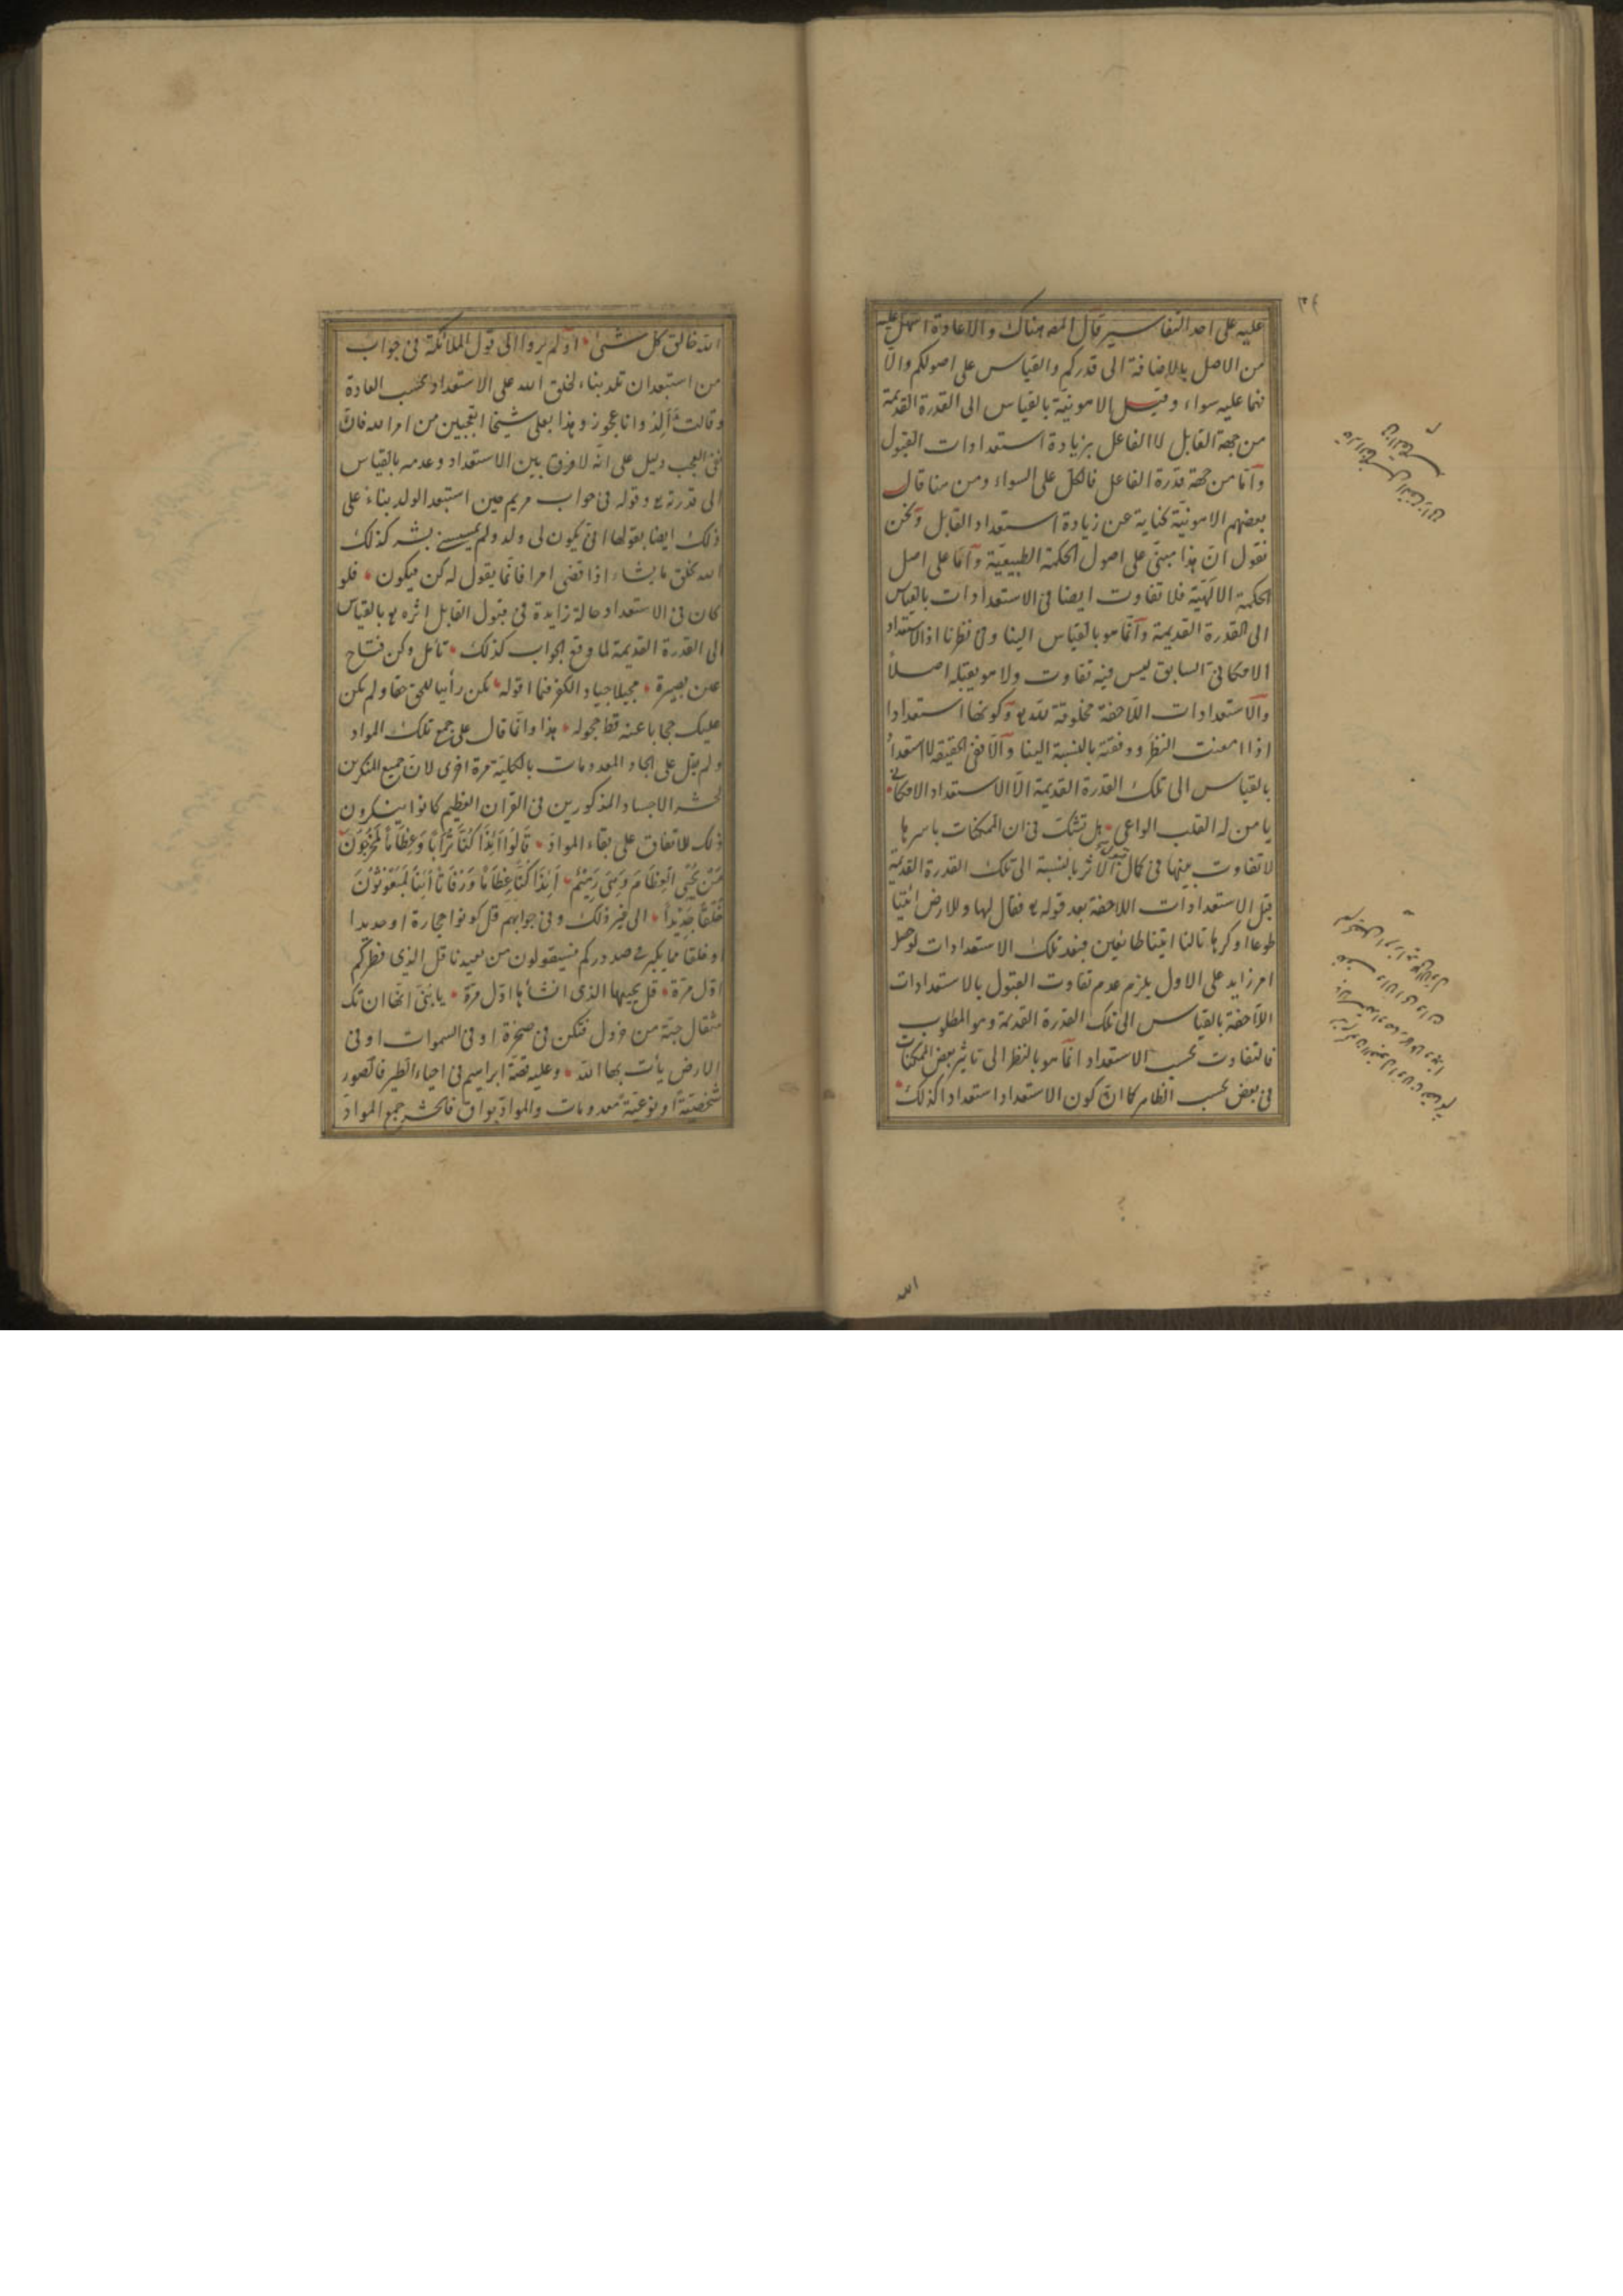 عليه على احد التفاسير قال المص هناك والاعادة اسهل عليه
من الاصل بالاضافة الى قدركم والقياس على اصولكم والا
فهما عليه سواء وقيل الاهونية بالقياس الى القدرة القديمة
من جهة القابل لا الفاعل بزيادة استعدادات القبول
وامّا من جهة قدرة الفاعل فالكل على السواء ومن هنا قال
بعضهم الاهونيّة كناية عن زيادة استعداد القابل ونحن
نقول انّ هذا مبنىّ على اصول الحكمة الطبيعيّة وامّا على اصل
الحكمة الالهيّة فلا تفاوت ايضا فى الاستعدادات بالقياس
الى القدرة القديمة وانّما هو بالقياس الينا وفى نظرنا اذ الاستعداد
الامكانىّ السابق ليس فيه تفاوت ولا هو يقبله اصلاً
والاستعدادات اللاحقة مخلوقة لله تع وكونها استعدادا
اذا امعنت النظر ودققته بالنسبة الينا والّا ففى الحقيقة لا استعداد
بالقياس الى تلك القدرة القديمة الّا الاستعداد الامكانى
يا من له القلب الواعى هل تشكّ فى ان الممكنات باسرها
لا تفاوت بينها فى كمال الاثر بالنسبة الى تلك القدرة القديمة
قبل الاستعدادات اللاحقة بعد قوله تع فقال لها وللارض ائتيا
طوعا او كرها قالتا اتينا طائعين فبعد تلك الاستعدادات لو حصل
امر زايد على الاول يلزم عدم تفاوت القبول بالاستعدادات
اللاحقة بالقياس الى تلك القدرة القديمة وهو المطلوب
فالتفاوت بحسب الاستعداد انّما هو بالنظر الى تاثير بعض الممكنات
فى بعض بحسب الظاهر كما انّ كون الاستعداد استعدادا كذلك
الله
الله خالق كل شىء اولم يروا الى قول الملائكة فى جواب
من استبعد ان تلد بناء لخلق الله على الاستعداد بحسب العادة
وقالت ءالد وانا عجوز وهذا بعلى شيخا اتعجبين من امر الله فانّ
نفى العجب دليل على انّه لا فرق بين الاستعداد وعدمه بالقياس
الى قدرته تع وقوله فى جواب مريم حين استبعد الولد بناء على
ذلك ايضا بقولها انى يكون لى ولد ولم يمسسنى بشر كذلك
الله يخلق ما يشاء اذا قضى امرا فانّما يقول له كن فيكون فلو
كان فى الاستعداد حالة زايدة فى قبول القابل اثره تع بالقياس
الى القدرة القديمة لما وقع الجواب كذلك تأمل وكن فتّاح
عين بصيرة مجيلا جياد الفكر فيما اقوله تكن رائيا للحق حقا ولم تكن
عليك حجابا عنه قط حجوله هذا وانّما قال على جمع تلك المواد
ولم يقل على ايجاد المعدومات بالكلية مرة اخرى لانّ جميع المنكرين
لحشر الاجساد المذكورين فى القران العظيم كانوا ينكرون
ذلك للاتفاق على بقاء الموادّ قَالُوا ائِذَا كُنَّا تُرَاباً وَعِظَاماً لمخرجون
مَنْ يُحْيِى الْعِظَامَ وَهِىَ رَمِيْمٌ أَئِذَا كُنَّا عِظَاماً وَرُفَاتاً أَئِنَّا لَمَبْعُوْثُوْنَ
خَلْقاً جَدِيْداً الى غير ذلك وفى جوابهم قل كونوا حجارة او حديدا
او خلقا مما يكبر فى صدوركم فسيقولون من يعيدنا قل الذى فطركم
اوّل مرّة قل يحييها الذى انشأها اوّل مرّة يا بنىّ انّها ان تك
مثقال حبّة من خردل فتكن فى صخرة او فى السموات او فى
الارض يأت بها الله وعليه قصّة ابراهيم فى احياء الطير فالصور
شخصيّة او نوعيّة معدومات والموادّ بواق فالحشر جمع الموادّ